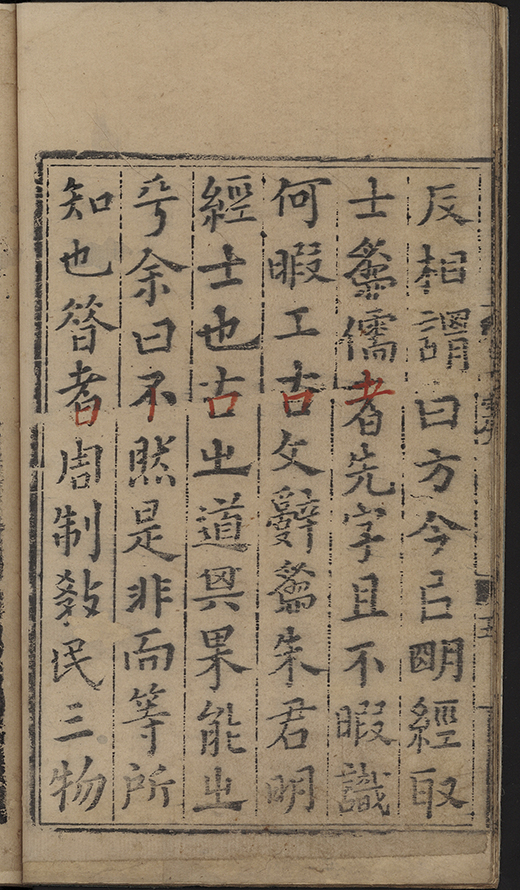 反相謂曰方今㠯朙經取
士葢儒者先字且不暇識
何暇工古文辭葢朱君明
經士也古㞢道其果能㞢
乎余曰不然是非而等所
知也㫺者周制敎民三物